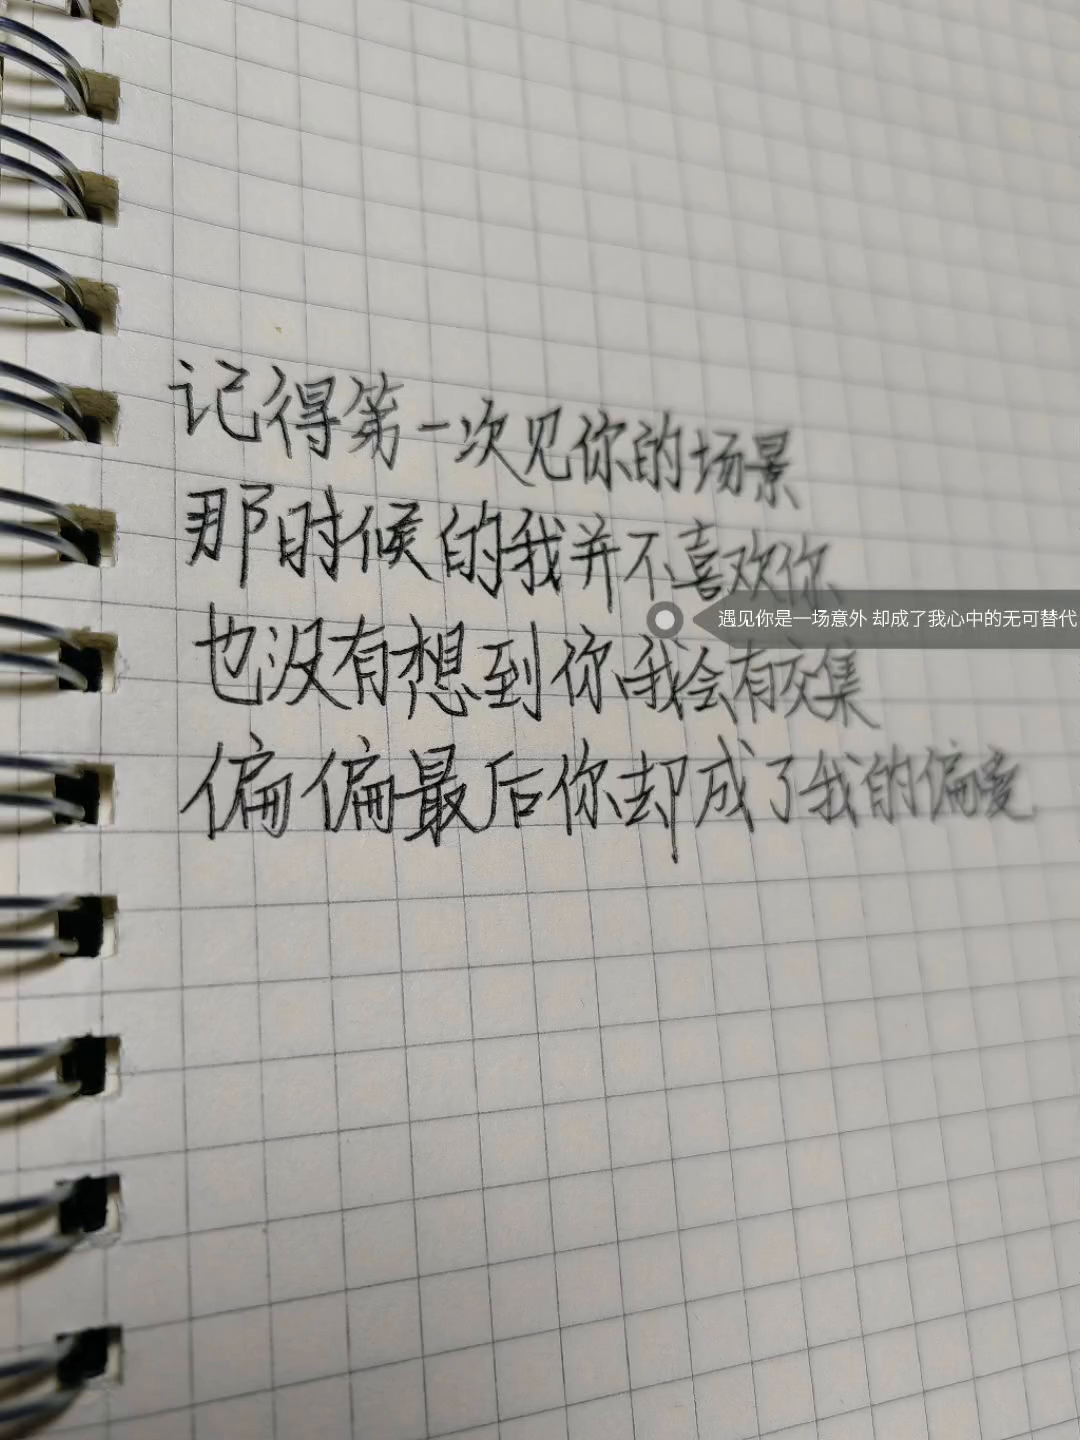 记得第一次见你的场景
那时候的我并不喜欢你
遇见你是一场意外 却成了我心中的无可替代
也没有想到你我会有交集
偏偏最后你却成了我的偏爱